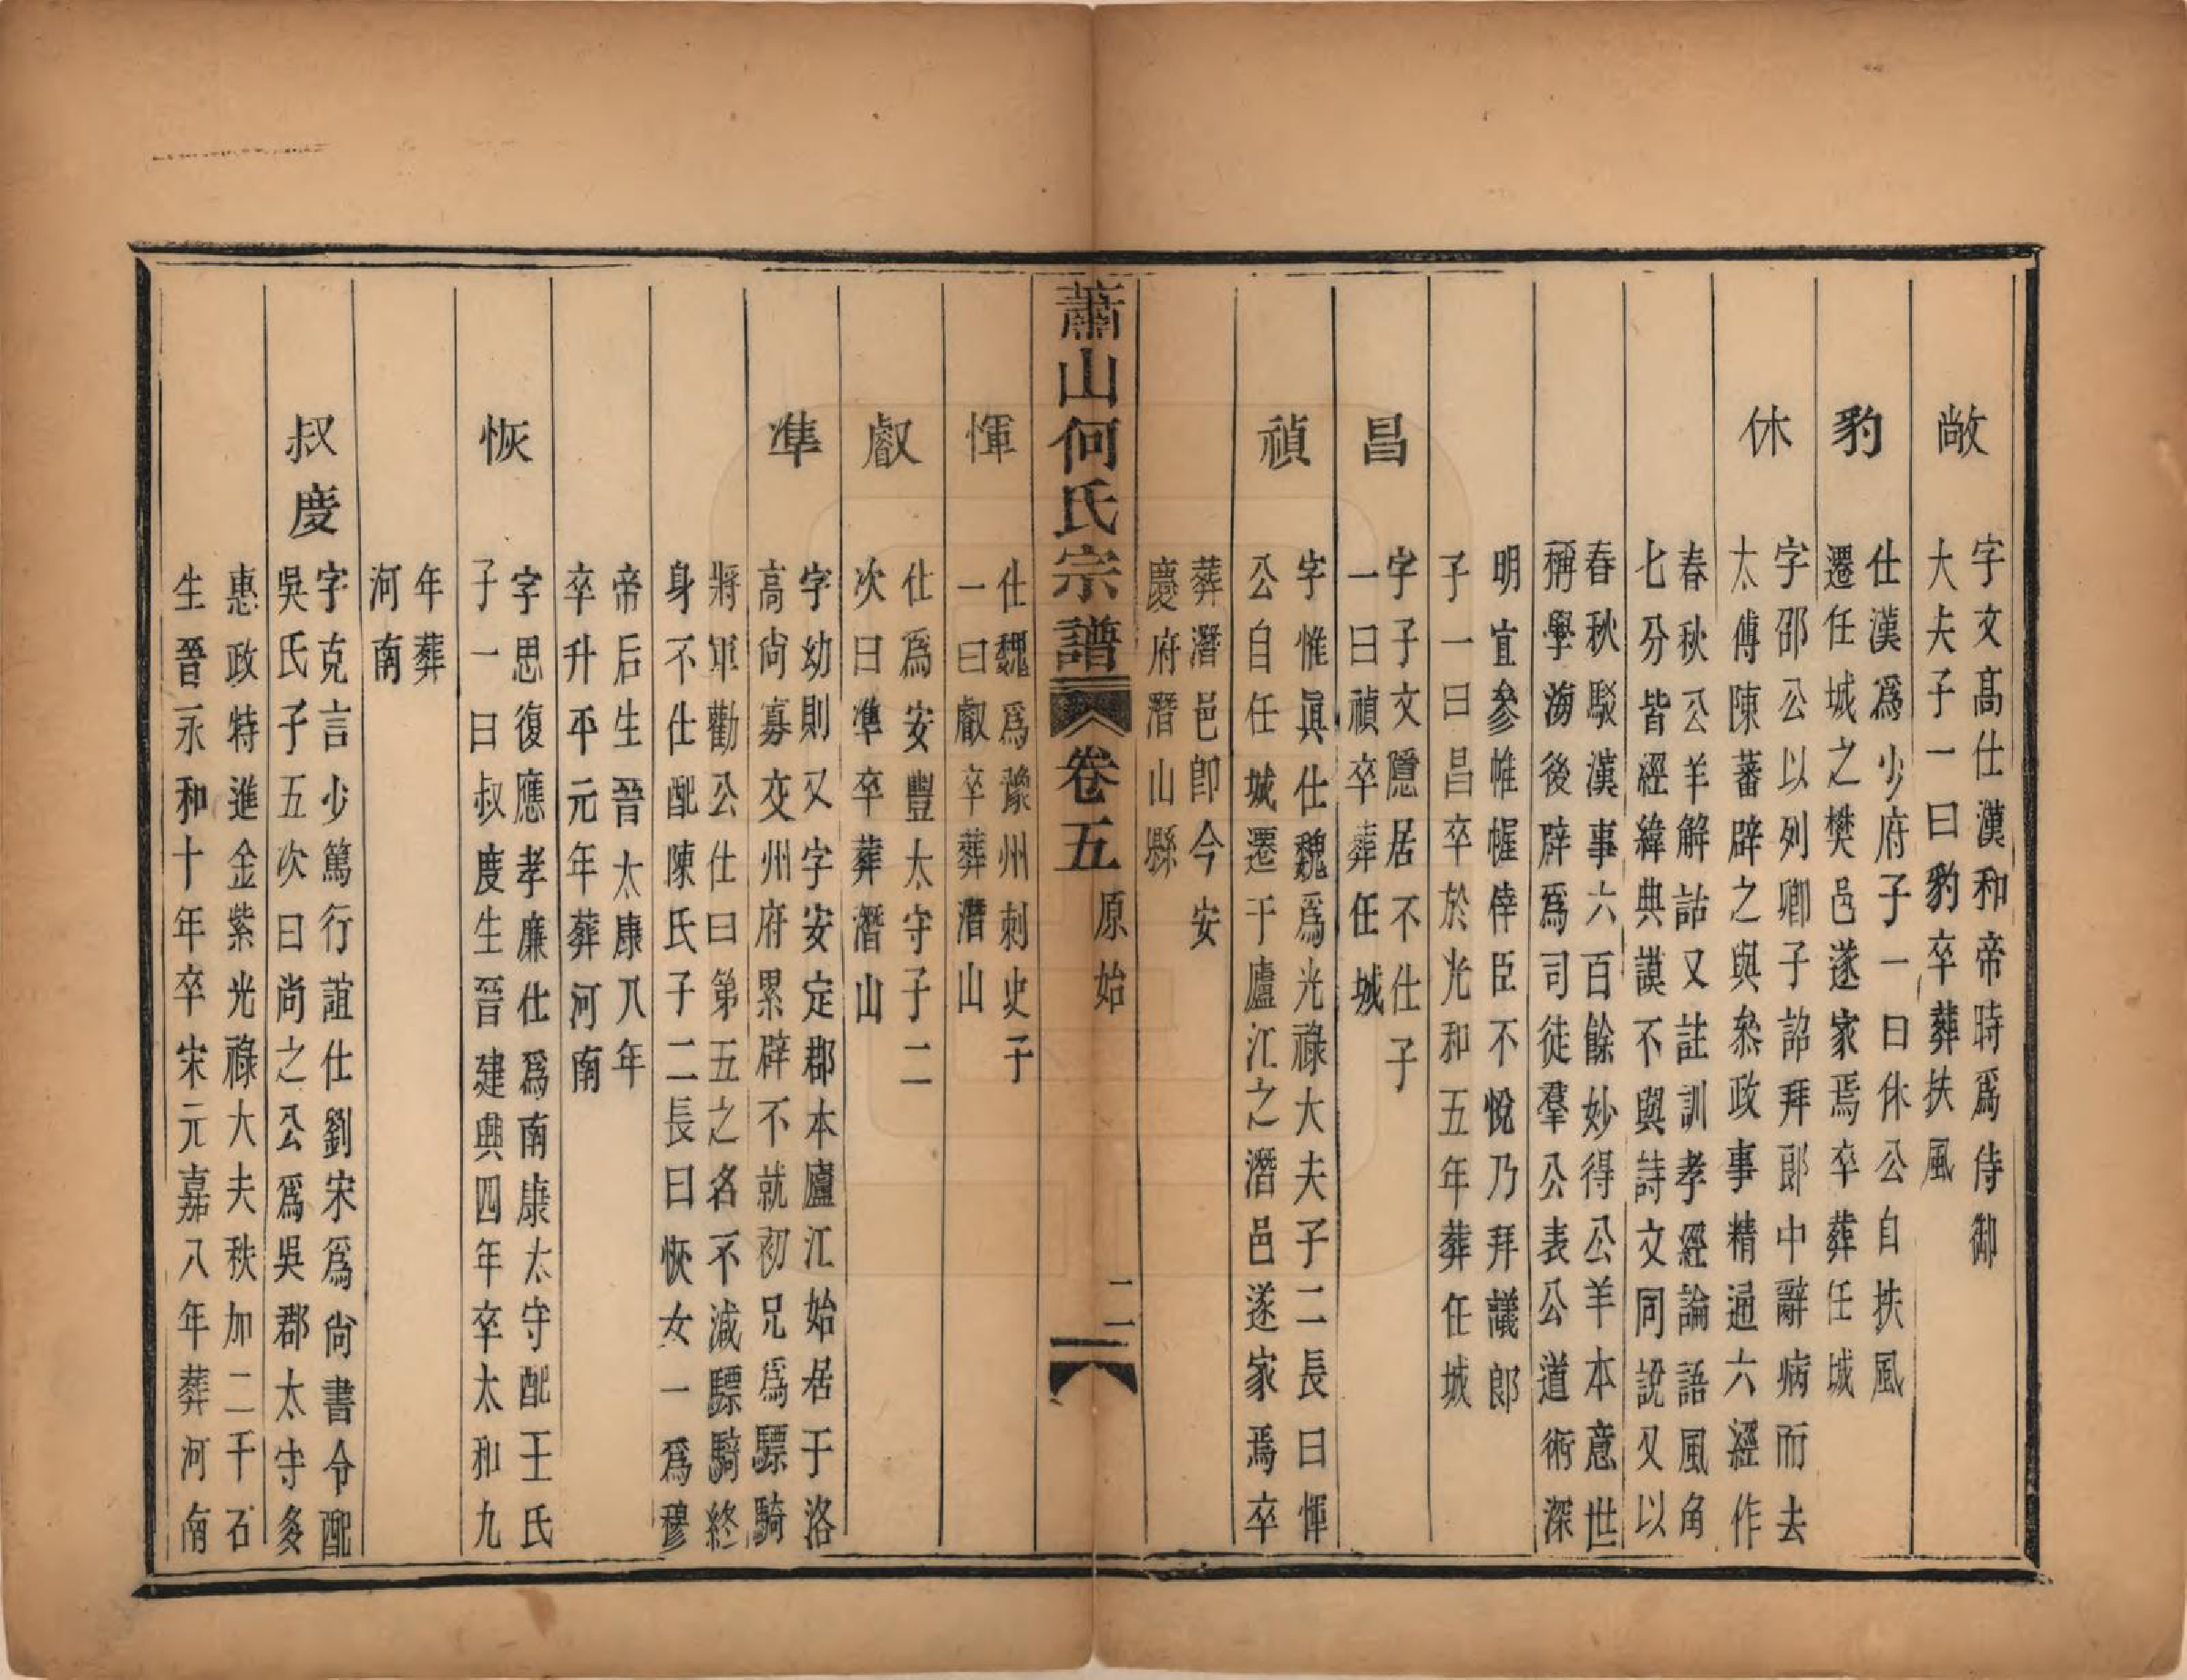 敞
字文高仕漢和帝時爲侍御
大夫子一曰豹卒葬扶風
豹
仕漢爲少府子一曰休公自扶風
遷任城之樊邑遂家焉卒葬任城
休
字邵公以列卿子詔拜郎中辭病而去
太傅陳蕃辟之與叅政事精通六經作
春秋公羊解詁又註訓孝經論語風角
七分皆經緯典謨不與詩文同說又以
春秋駁漢事六百餘妙得公羊本意世
稱學海後辟爲司徒羣公表公道術深
明宜參帷幄倖臣不悅乃拜議郎
子一曰昌卒於光和五年葬任城
昌
字子文隱居不仕子
一曰禎卒葬任城
禎
字惟眞仕魏爲光祿大夫子二長曰惲
公自任城遷于廬江之潛邑遂家焉卒
葬潛邑卽今安
慶府潛山縣
蕭山何氏宗譜 卷五 原始 二
惲
仕魏爲豫州刺史子
一曰叡卒葬潛山
叡
仕爲安豐太守子二
次曰準卒葬潛山
準
字幼則又字安定郡本廬江始居于洛
高尙寡交州府累辟不就初兄爲驃騎
將軍勸公仕曰第五之名不減驃騎終
身不仕配陳氏子二長曰恢女一爲穆
帝后生晉太康八年
卒升平元年葬河南
恢
字思復應孝廉仕爲南康太守配王氏
子一曰叔度生晉建興四年卒太和九
年葬
河南
叔慶
字克言少篤行誼仕劉宋爲尙書令配
吳氏子五次曰尚之公爲吳郡太守多
惠政特進金紫光祿大夫秩加二千石
生晉永和十年卒宋元嘉八年葬河南